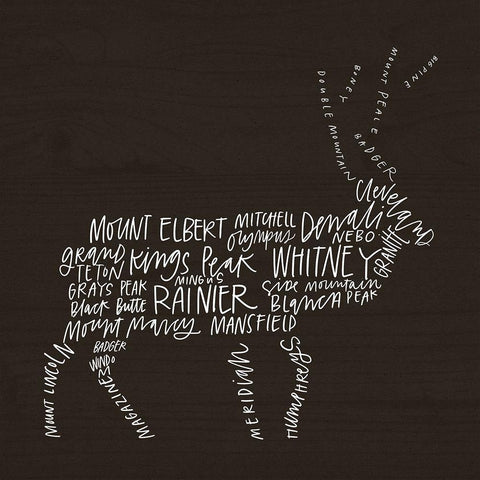 BIG PINE
MOUNT PEALE
BONEY
DOUBLE MOUNTAIN
BADGER
Cleveland
MOUNT ELBERT
MITCHELL
Denali
Olympus
NEBO
GRANITE
grand
TETON
Kings Peak
WHITNEY
MINGUS
GRAYS PEAK
RAINIER
Side mountain
Black Butte
BLANCA PEAK
Mount Marcy
MANSFIELD
MOUNT LINCOLN
BADGER
WINDOM
MAGAZINE
MERIDIAN
HUMPHREYS